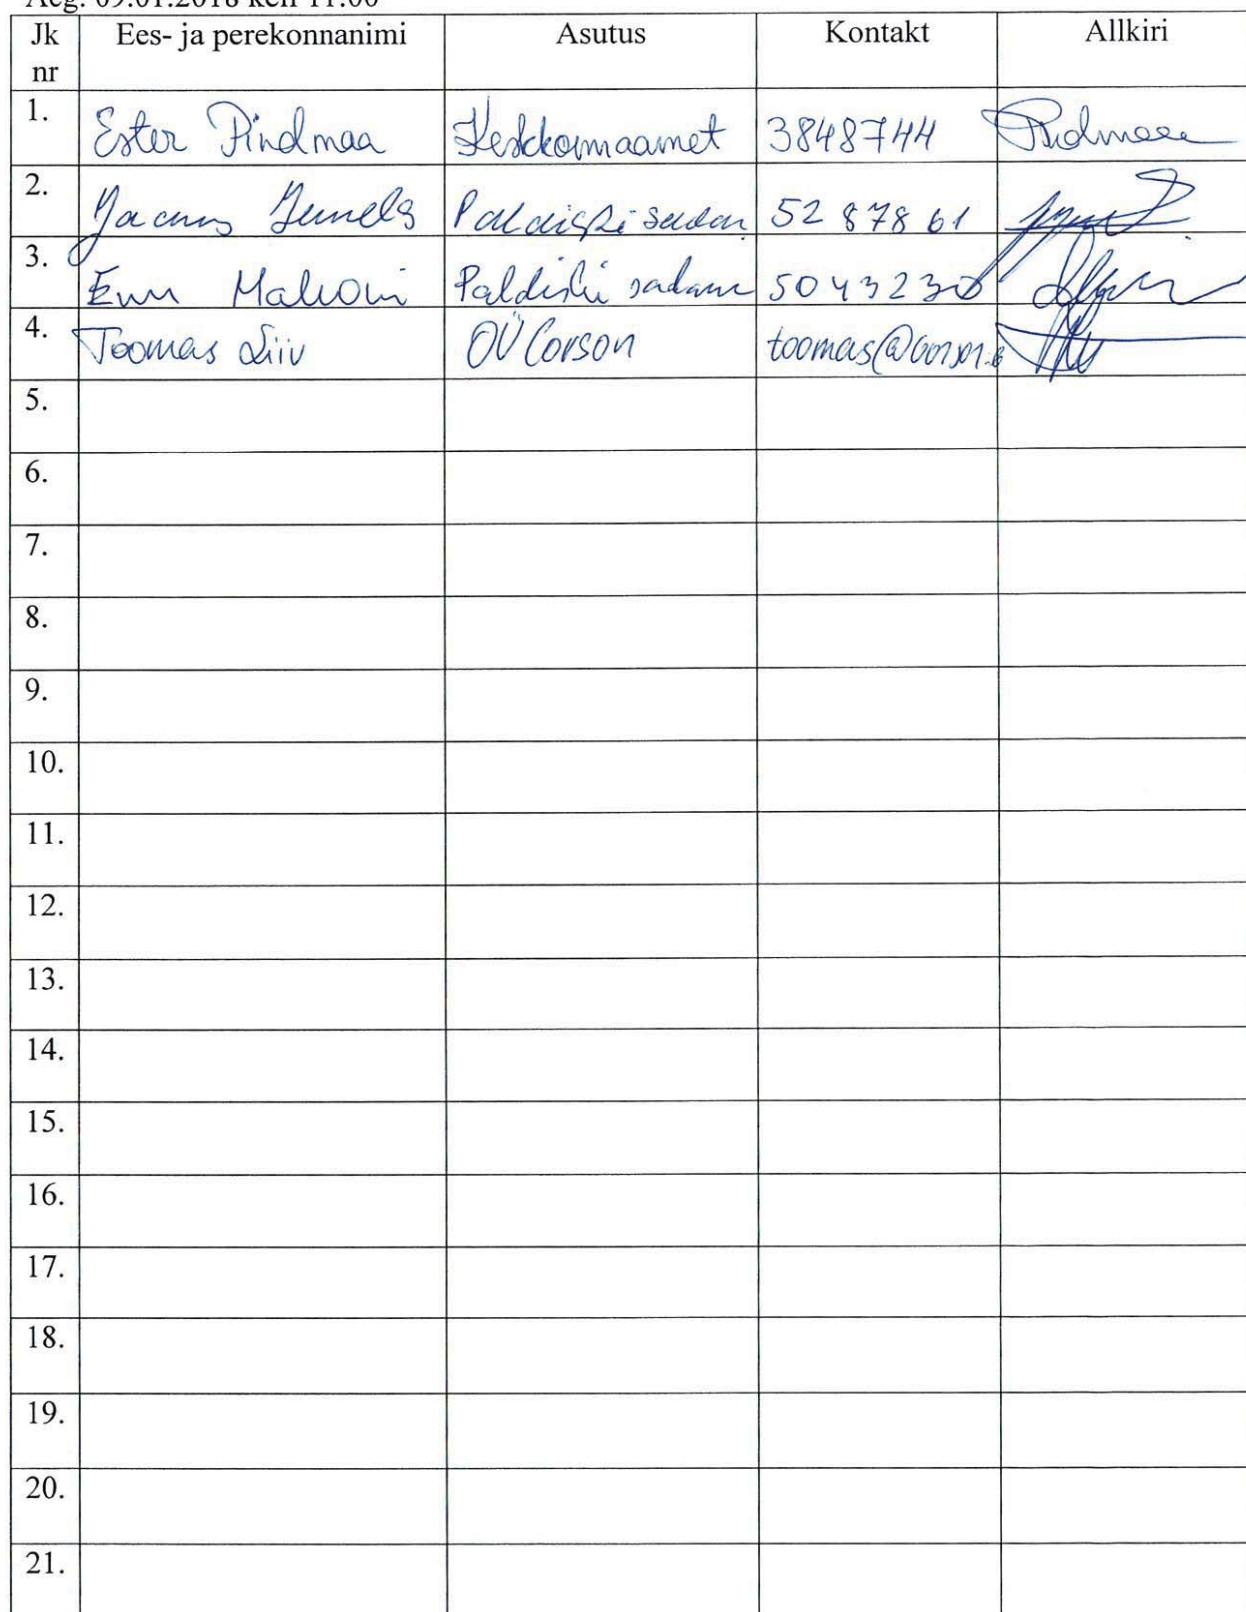 Aeg: 09.01.2018 kell 11:00
Jk nr Ees- ja perekonnanimi Asutus Kontakt Allkiri
1. Ester Pindmaa Keskkonnaamet 3848744 Pindmaa
2. Jaanus Paldiski sadam 5287861
3. Enn Paldiski sadam 5043230
4. Toomas Liiv OÜ Corson
5.
6.
7.
8.
9.
10.
11.
12.
13.
14.
15.
16.
17.
18.
19.
20.
21.